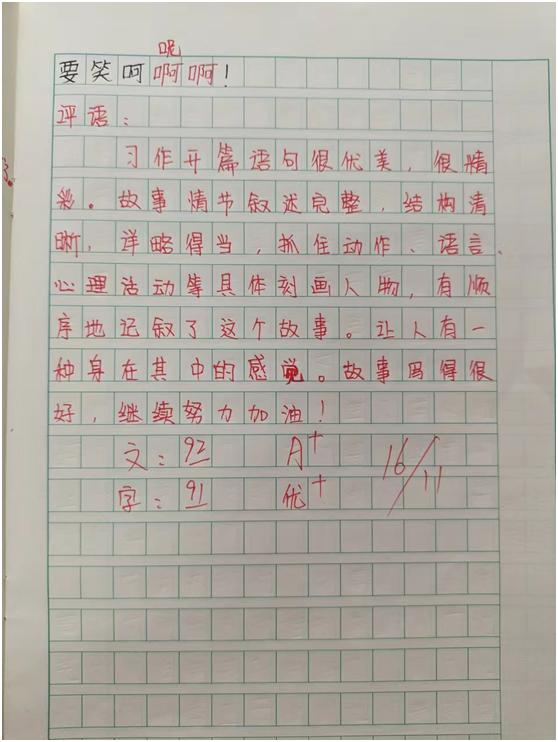 呢
要笑呵啊啊！
评语：
习作开篇语句很优美，很精
彩。故事情节叙述完整，结构清
晰，详略得当，抓住动作、语言、
心理活动等具体刻画人物，有顺
序地记叙了这个故事。让人有一
种身在其中的感觉。故事写得很
好，继续努力加油！
文：92 A+ 16/11
字：91 优+